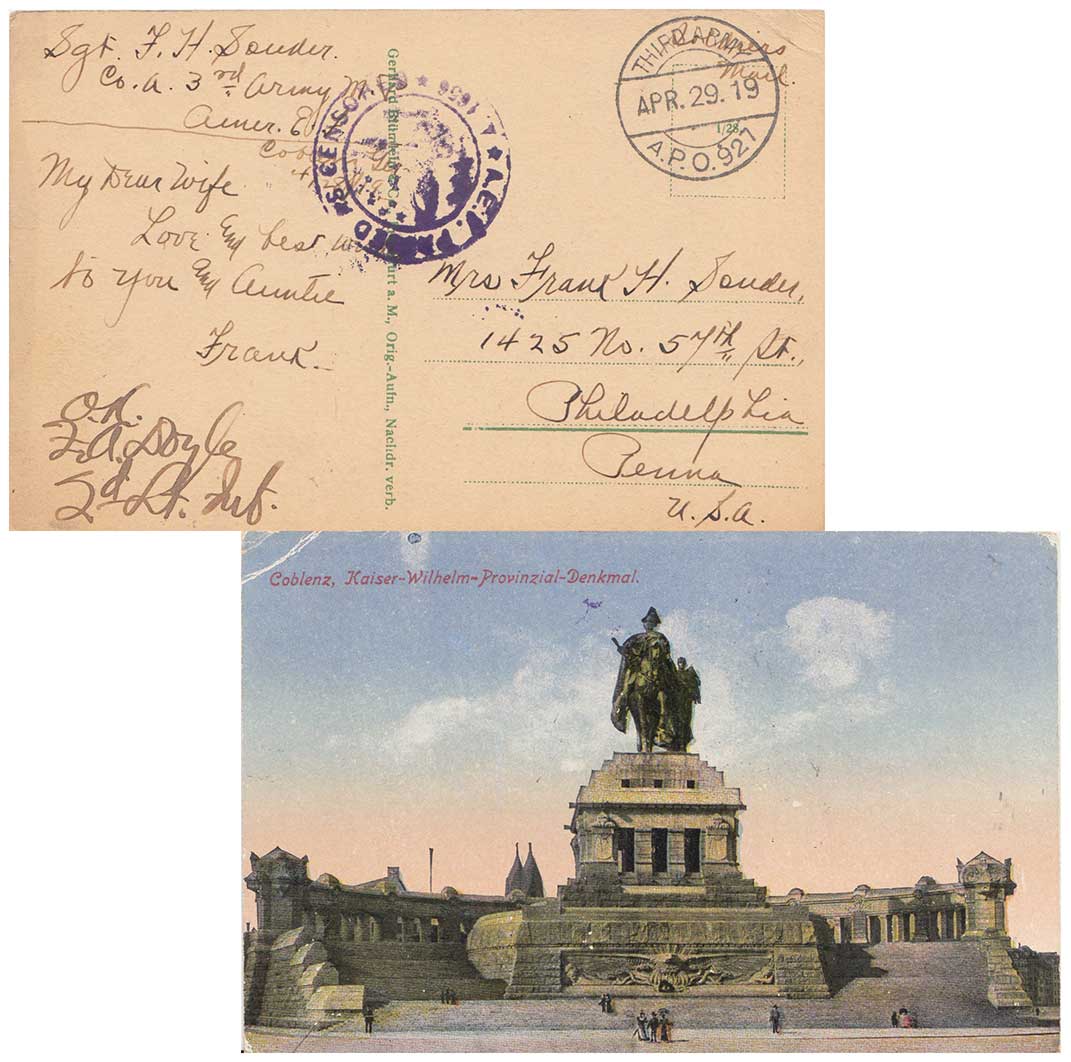 Sgt. F. H. Souder.
Co. A. 3rd Army M. P.
Amer. E.
4/29/19
My Dear Wife
Love and best
to you and Auntie
Frank.
O.K.
F. A. Doyle
2d Lt. Inf.
Gerhard Blümlein & C
furt a. M., Orig.-Aufn., Nachdr. verb.
A.E.F. PASSED AS CENSORED
A. 1636
Soldiers
Mail.
THIRD ARMY
APR. 29. 19
A.P.O. 927
1/28.
Mrs Frank H. Souder,
1425 No. 57th St.,
Philadelphia
Penna
U. S. A.
Coblenz, Kaiser-Wilhelm-Provinzial-Denkmal.